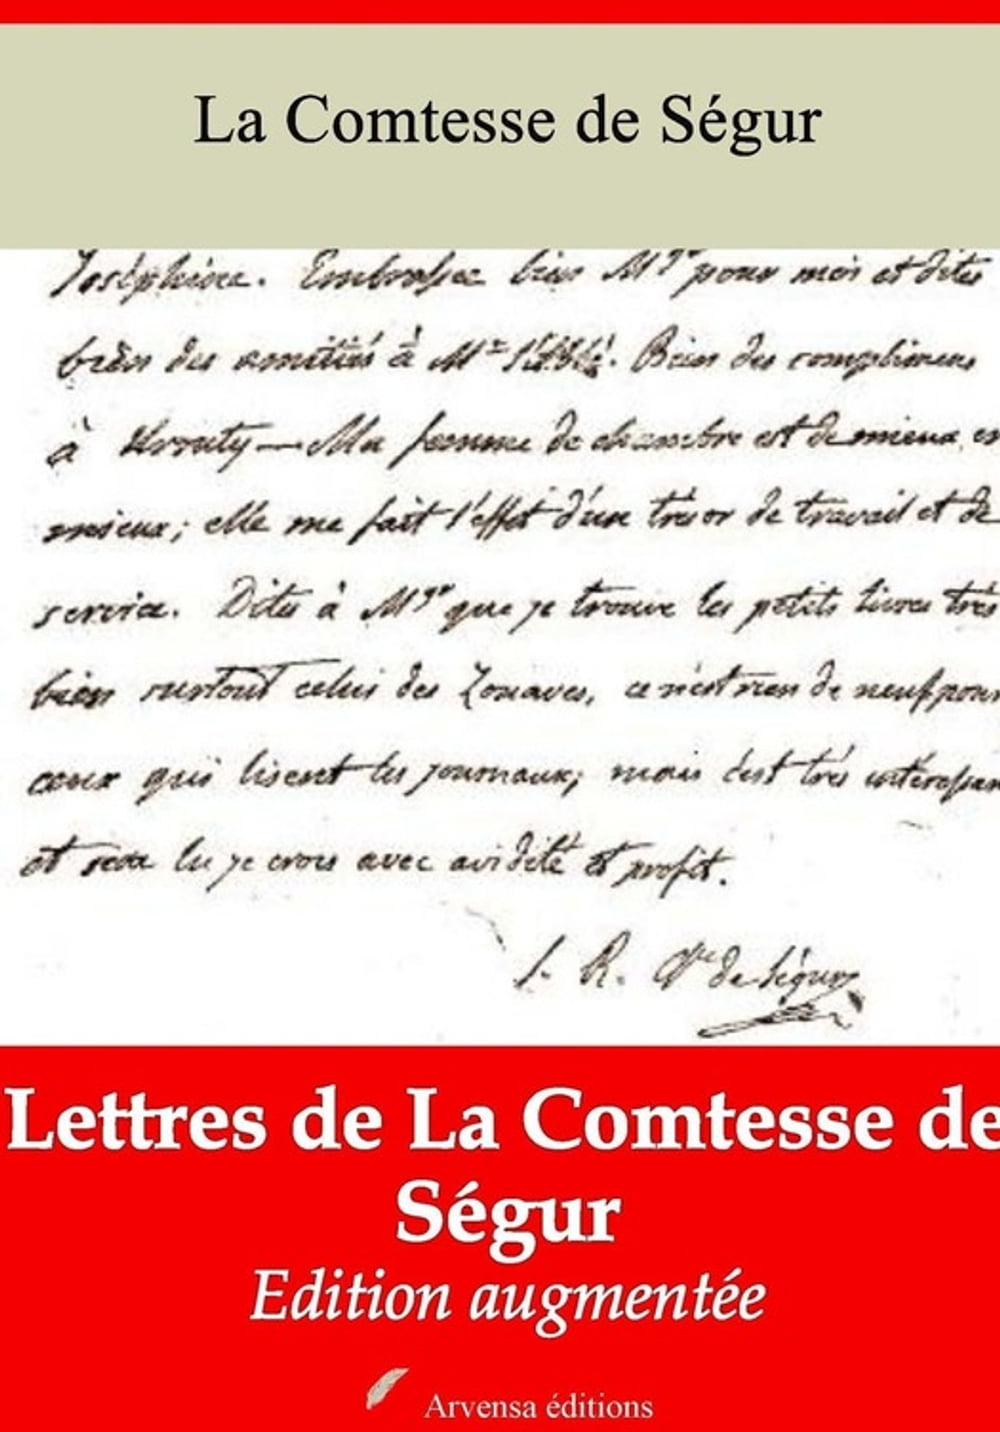 La Comtesse de Ségur
Joséphine. Embrassez bien Mgr pour moi et dites
bien des amitiés à Mr l'Abbé. Bien des complimens
à Ma femme de chambre est de mieux en
mieux; elle me fait l'effet d'un trésor de travail et de
service. Dites à Mgr que je trouve les petits livres très
bien surtout celui des Zouaves, ce n'est rien de neuf pour
ceux qui lisent les journaux; mais c'est très intéressan
et sera lu je crois avec avidité et profit.
S. R. Ctesse de Ségur
Lettres de La Comtesse de
Ségur
Edition augmentée
Arvensa éditions